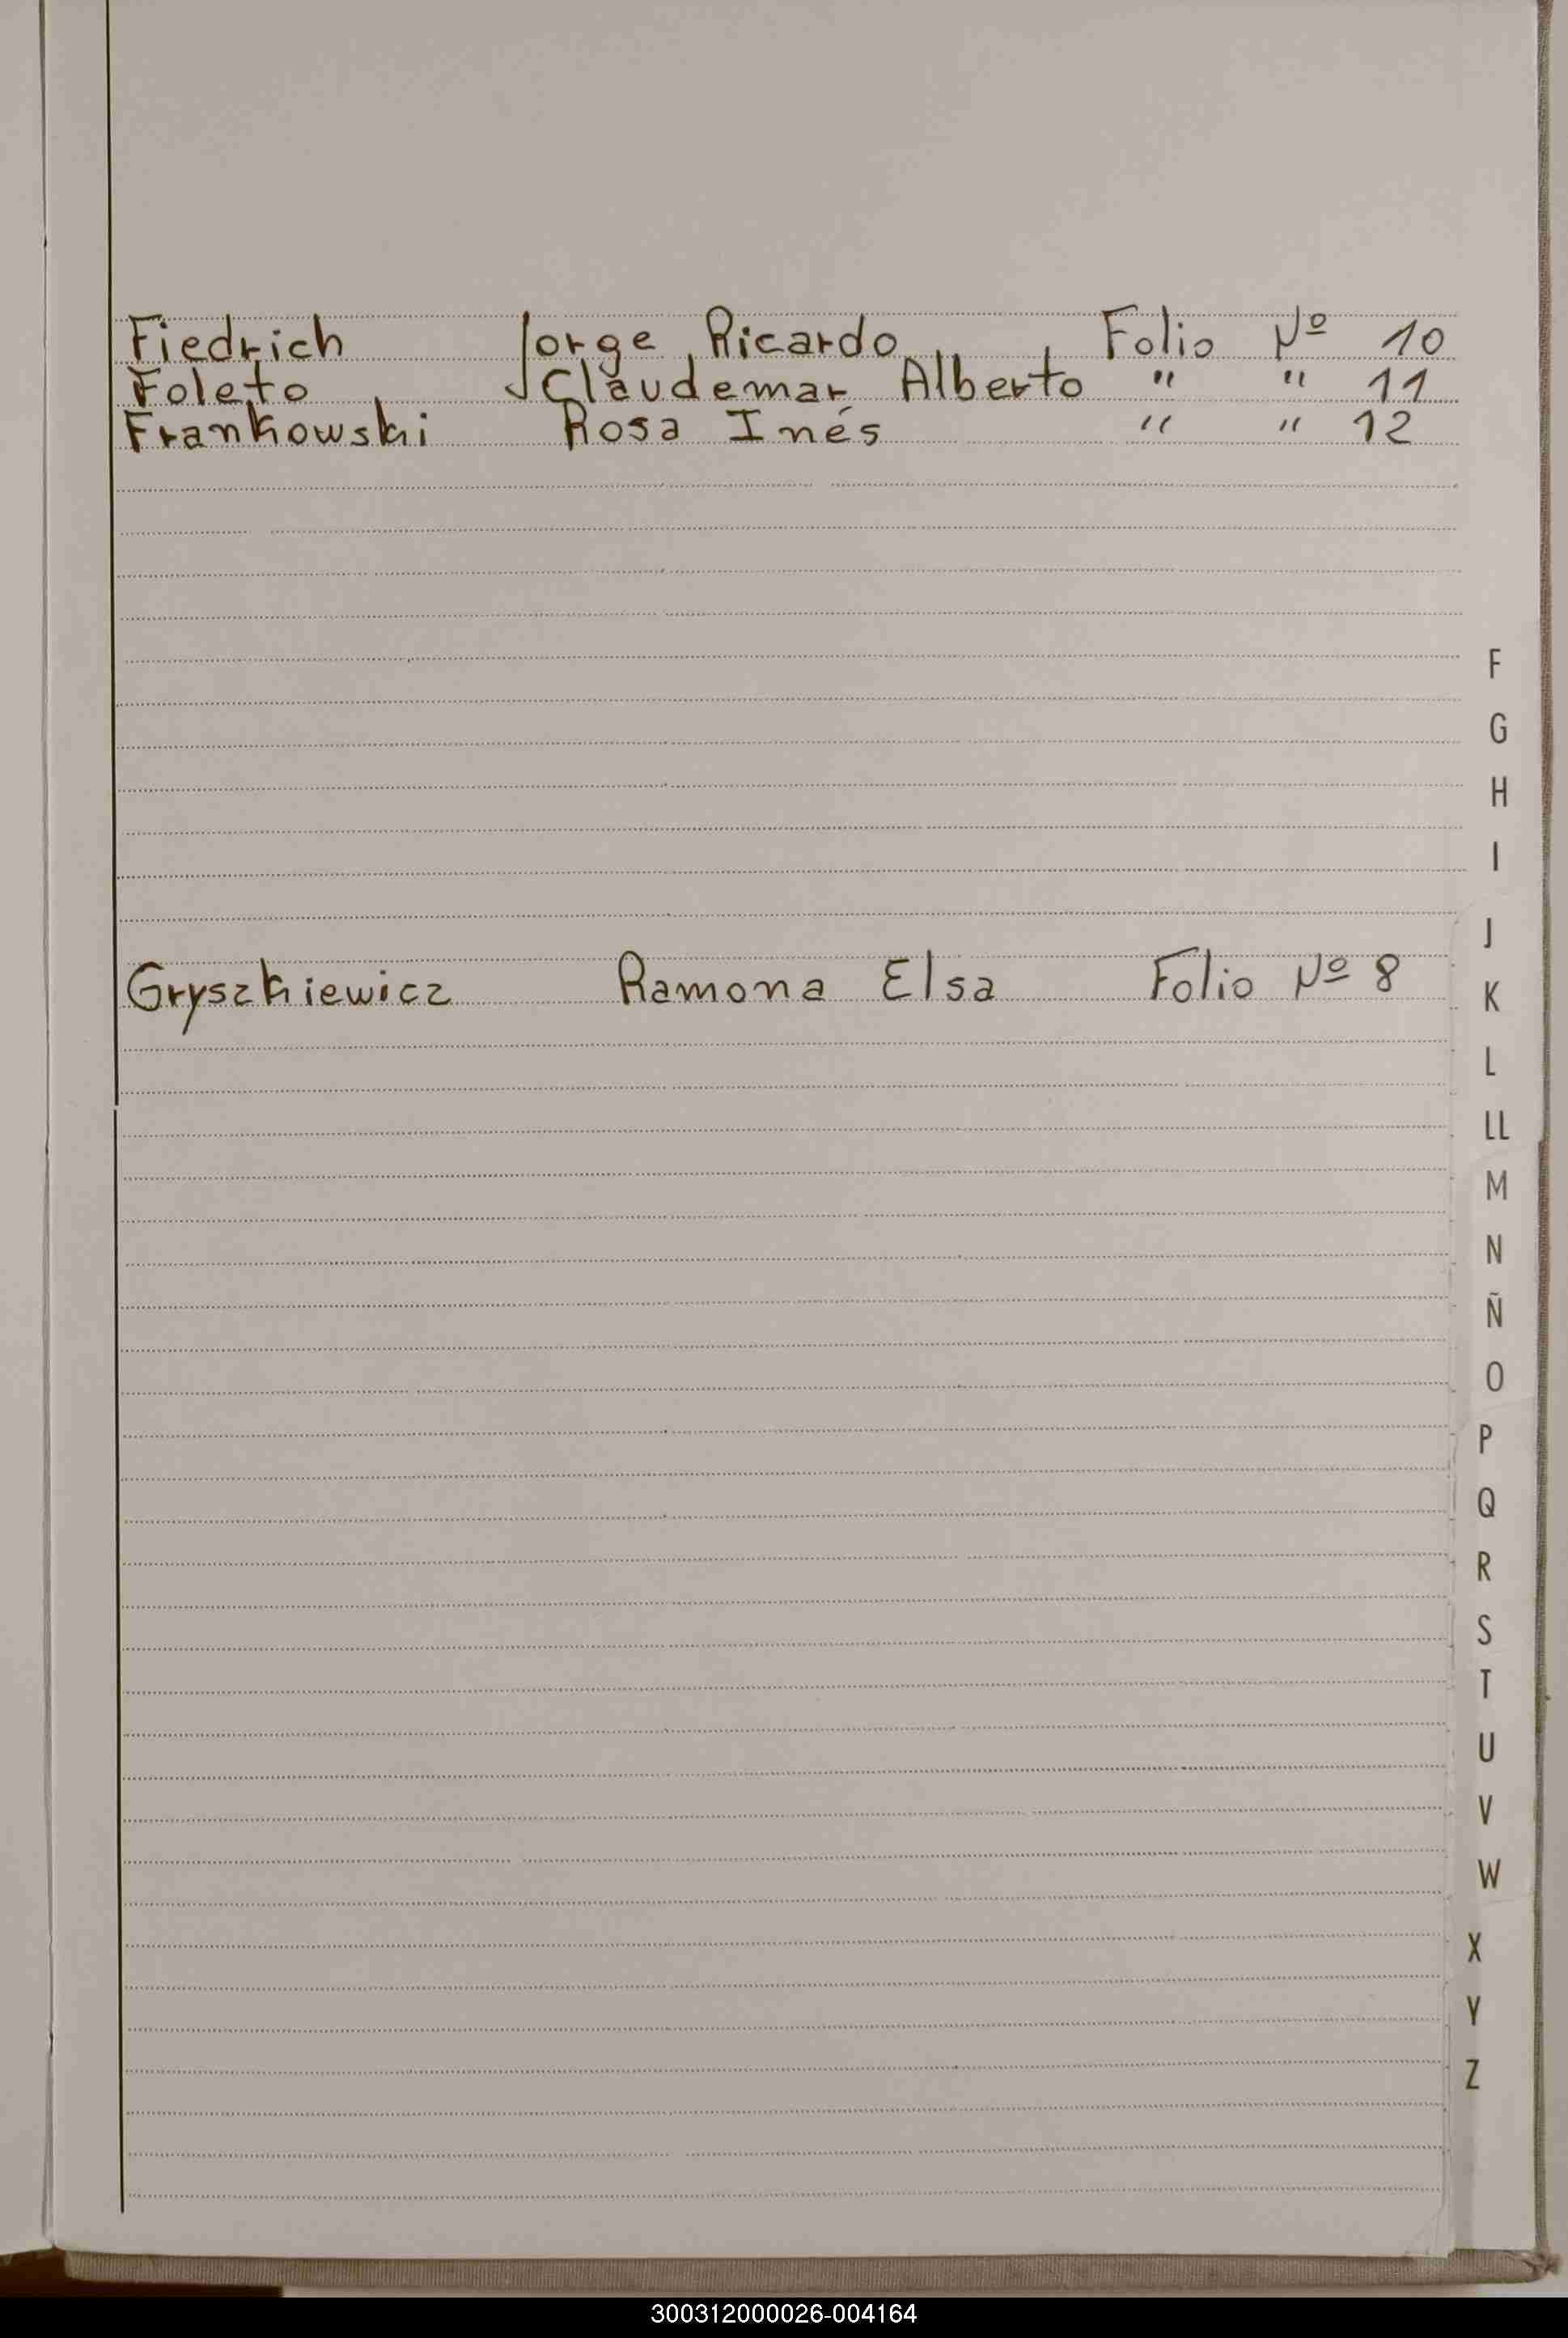 Fiedrich Jorge Ricardo Folio Nº 10
Foleto Claudemar Alberto " " 11
Frankowski Rosa Inés " " 12
F
G
H
I
J
Gryszkiewicz Ramona Elsa Folio Nº 8
K
L
LL
M
N
Ñ
O
P
Q
R
S
T
U
V
W
X
Y
Z
300312000026-004164